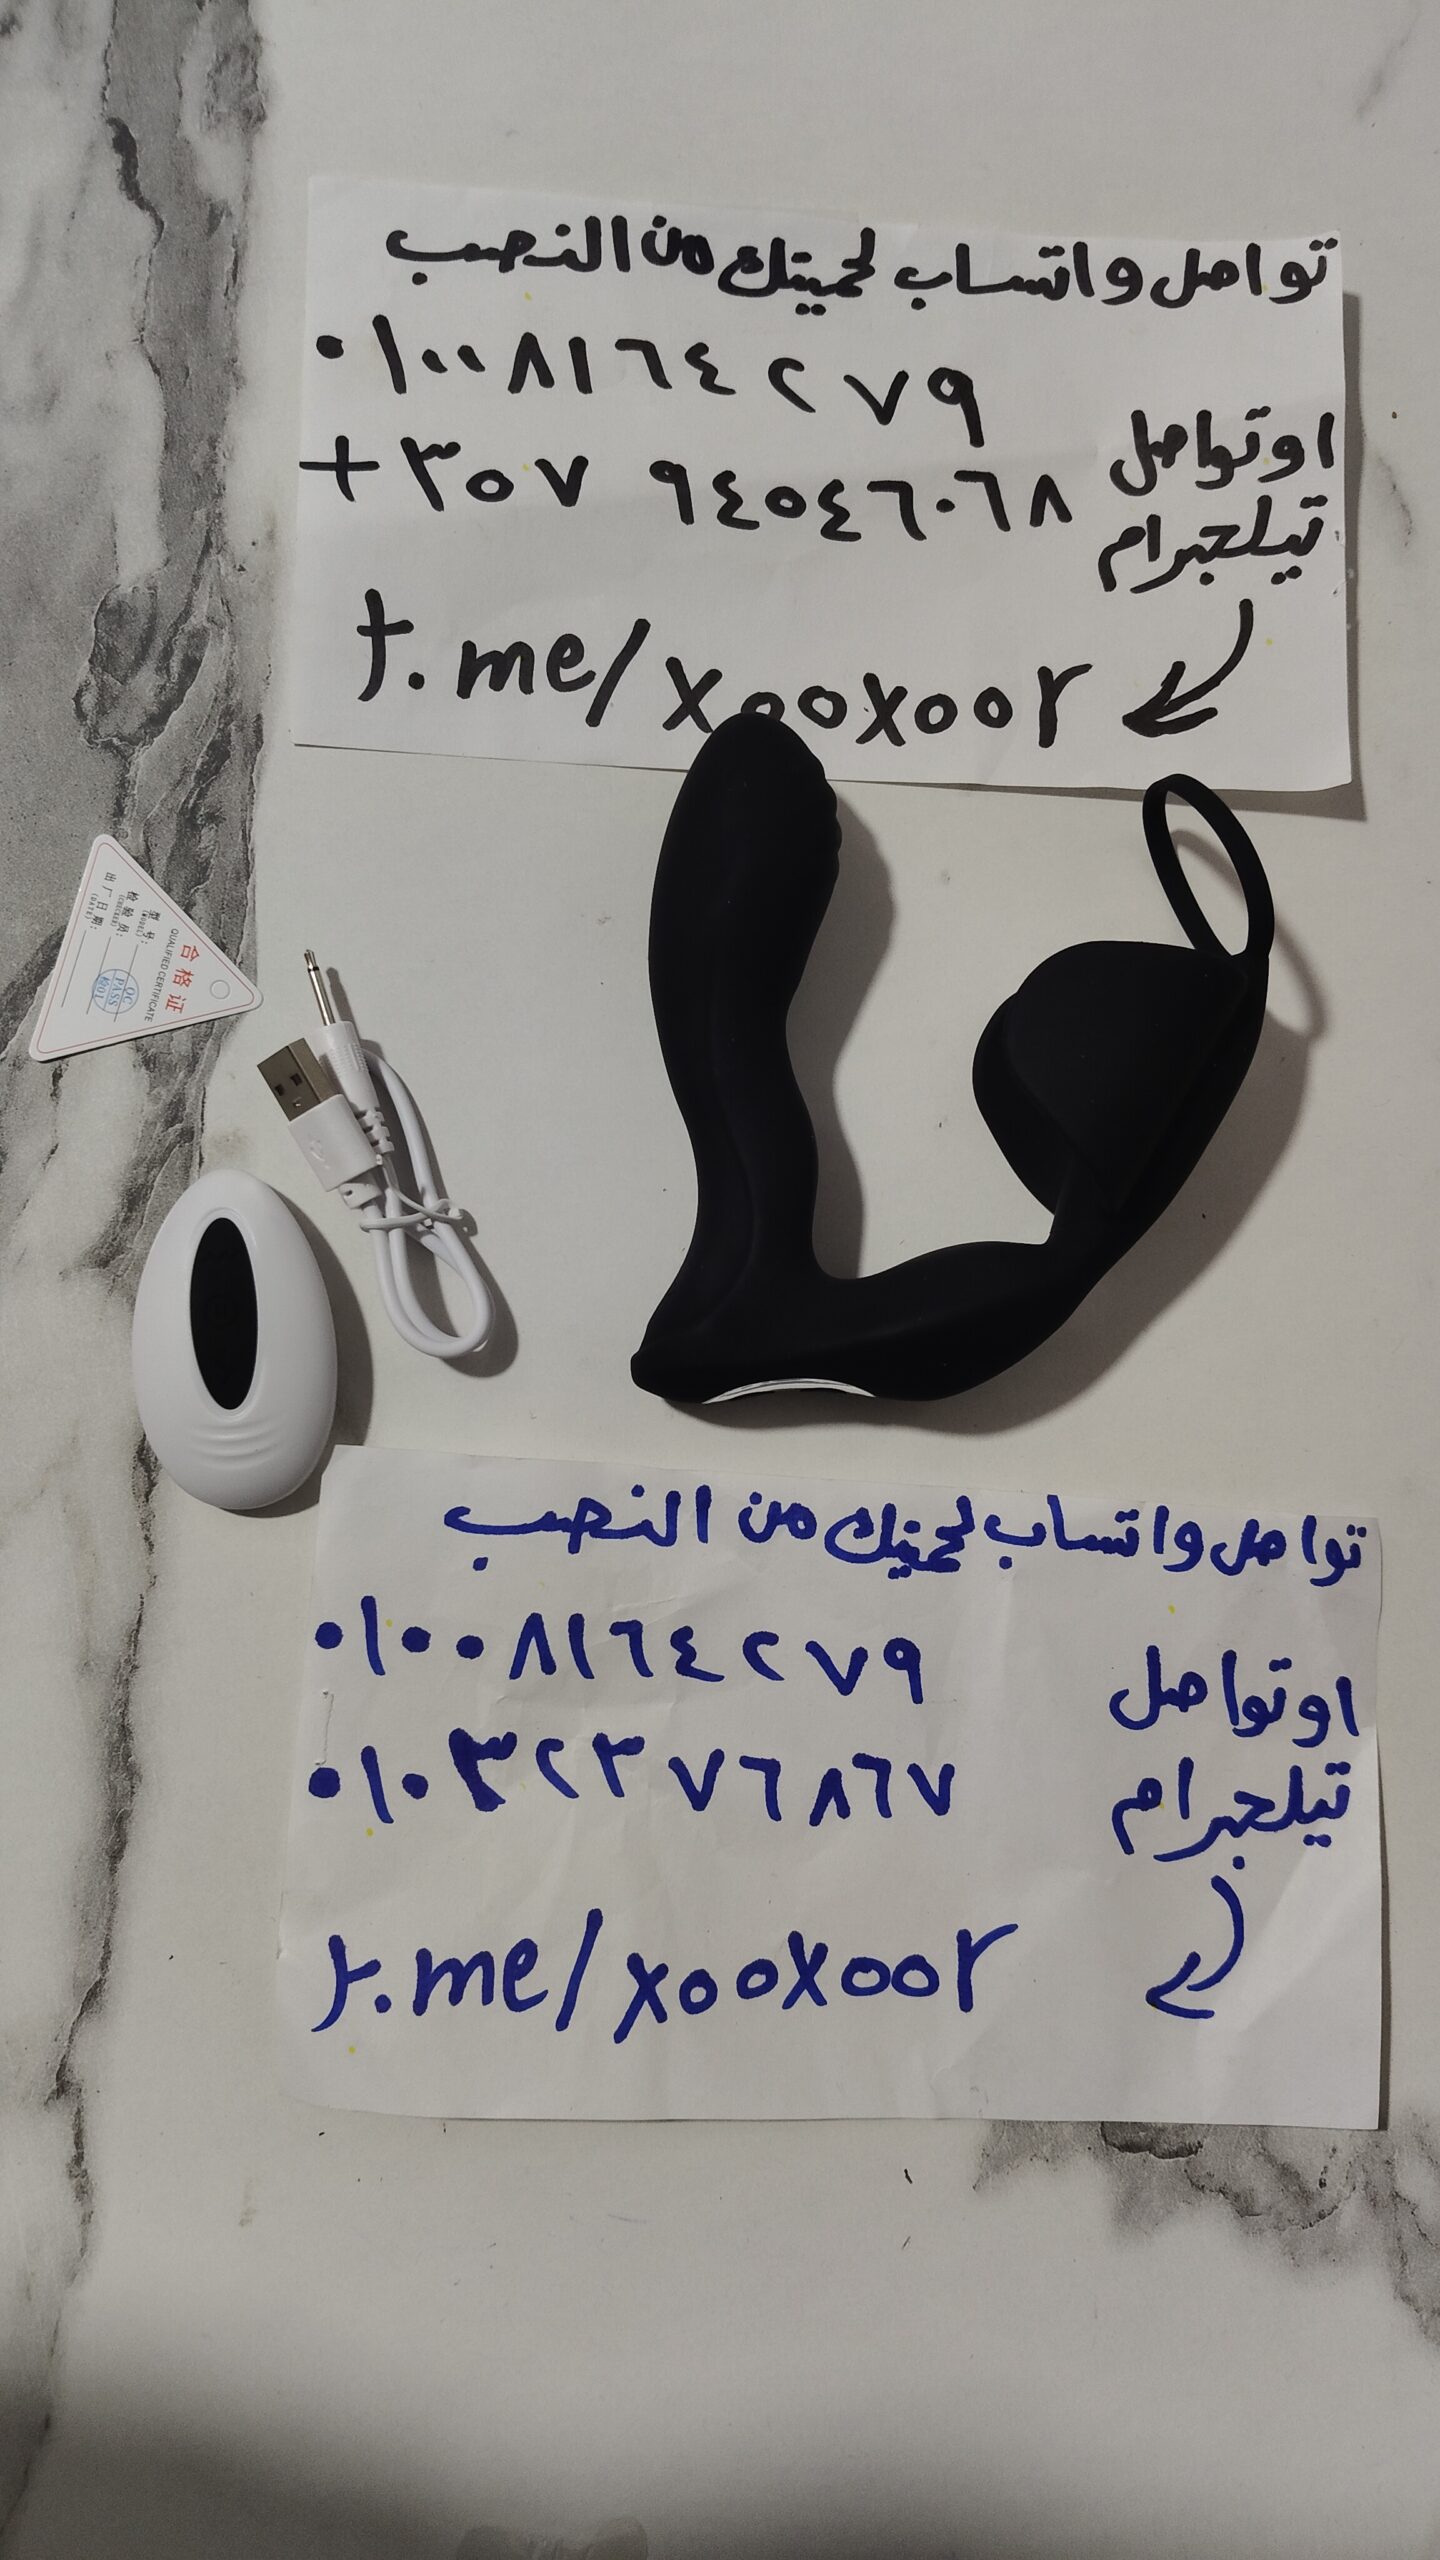 تواصل واتساب لحميتك من النصب
٠١٠٠٨١٦٤٢٧٩
+٣٥٧ ٩٤٥٤٦٠٦٨
او تواصل
تيلجرام
t.me/xooxoo٢
合格证
QUALIFIED CERTIFICATE
型号:
(MODEL)
检验员:
(CHECKER)
出厂日期:
(DATE)
QC
PASS
检01
تواصل واتساب لحميتك من النصب
٠١٠٠٨١٦٤٢٧٩
٠١٠٣٢٣٧٦٨٦٧
او تواصل
تيلجرام
t.me/xooxoo٢